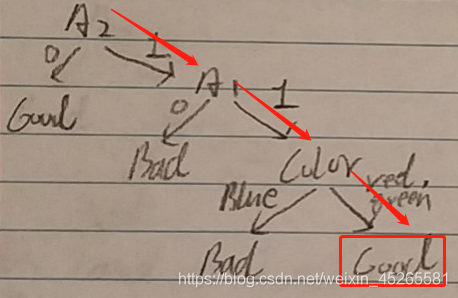 A2
0 1
Good A1
0 1
Bad Color
Blue red,
green
Bad Good
https://blog.csdn.net/weixin_45265581